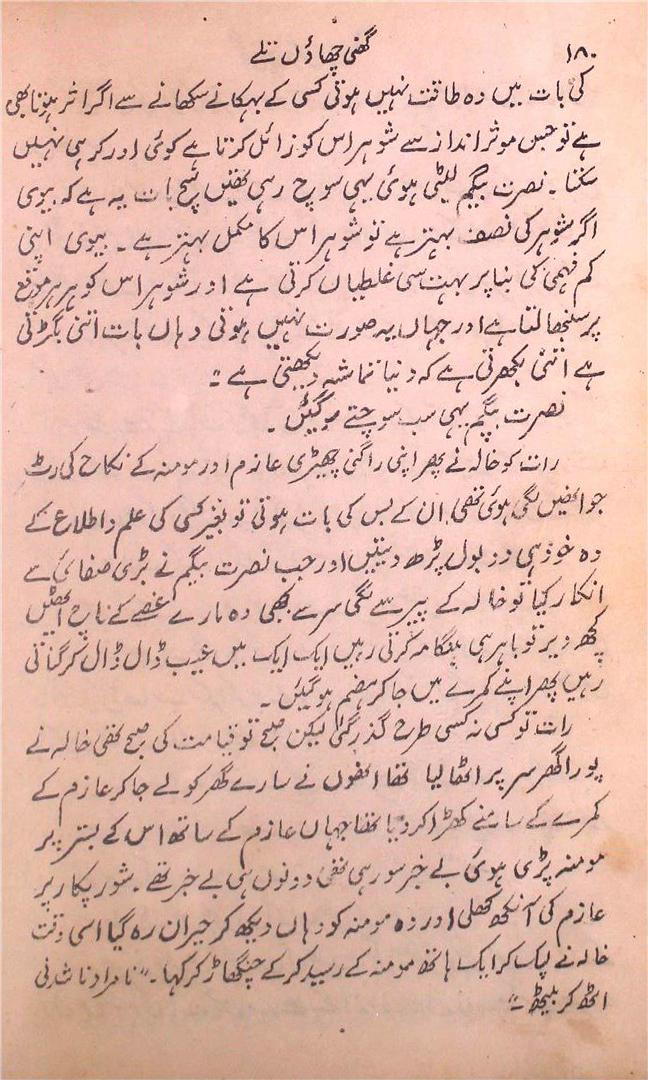 ۱۸۰ گھنی چھاؤں تلے
کی بات میں وہ طاقت نہیں ہوتی کسی کے بہکانے سکھانے سے اگر اثر ہوتا بھی
ہے تو جس موثر انداز سے شوہر اس کو زائل کرتا ہے کوئی اور کر ہی نہیں
سکتا۔ نصرت بیگم لیٹی ہوئی یہی سوچ رہی تھیں سچ بات یہ ہے کہ بیوی
اگر شوہر کی نصف بہتر ہے تو شوہر اس کا مکمل بہتر ہے۔ بیوی اپنی
کم فہمی کی بنا پر بہت سی غلطیاں کرتی ہے اور شوہر اس کو ہر ہر موقع
پر سنبھالتا ہے اور جہاں یہ صورت نہیں ہوتی وہاں بات اتنی بگڑتی
ہے اتنی بکھرتی ہے کہ دنیا تماشہ دیکھتی ہے۔"
نصرت بیگم یہی سب سوچتے سو گئیں۔
رات کو خالہ نے پھر اپنی راگنی چھیڑی عازم اور مومنہ کے نکاح کی رٹ
جو انھیں لگی ہوئی تھی ان کے بس کی بات ہوتی تو بغیر کسی کی علم و اطلاع کے
وہ خود ہی دو بول پڑھ دیتیں اور جب نصرت بیگم نے بڑی صفائی سے
انکار کیا تو خالہ کے پیر سے لگی سر سے بجھی وہ مارے غصے کے ناچ اٹھیں
کچھ دیر تو باہر ہی ہنگامہ کرتی رہیں ایک ایک میں عیب ڈال ڈال کر گناتی
رہیں پھر اپنے کمرے میں جا کر ہضم ہو گئیں۔
رات تو کسی نہ کسی طرح گذر گئی لیکن صبح تو قیامت کی صبح تھی خالہ نے
پورا گھر سر پر اٹھا لیا تھا انھوں نے سارے گھر کو لے جا کر عازم کے
کمرے کے سامنے کھڑا کر دیا تھا جہاں عازم کے ساتھ اس کے بستر پر
مومنہ پڑی ہوئی بے خبر سو رہی تھی دونوں ہی بے خبر تھے۔ شور پکار پر
عازم کی آنکھ کھلی اور وہ مومنہ کو وہاں دیکھ کر حیران رہ گیا اسی وقت
خالہ نے لپک کر ایک ہاتھ مومنہ کے رسید کر کے چنگھاڑ کر کہا۔ "نامراد ناشدنی
اٹھ کر بیٹھ۔"